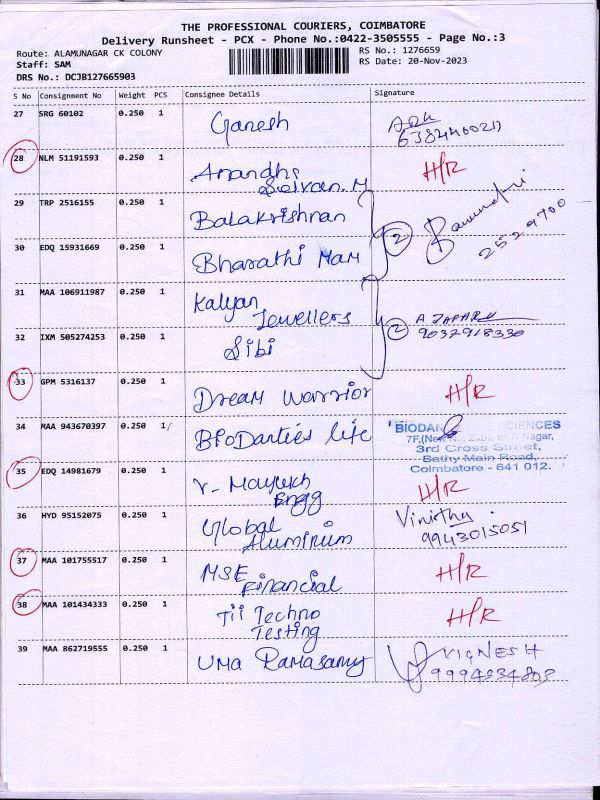 THE PROFESSIONAL COURIERS, COIMBATORE
Delivery Runsheet - PCX - Phone No.:0422-3505555 - Page No.:3
Route: ALAMUNAGAR CK COLONY RS No.: 1276659
Staff: SAM RS Date: 20-Nov-2023
DRS No.: DCJB127665903
S No Consignment No Weight PCS Consignee Details Signature
27 SRG 60102 0.250 1 Ganesh
28 NLM 51191593 0.250 1 Anandha H/R
Selvan.M
29 TRP 2516155 0.250 1 Balakrishnan
2 2529700
30 EDQ 15931669 0.250 1 Bharathi Mam
31 MAA 106911987 0.250 1 Kalyan
Jewellers
2 9032918330
32 IXM 505274253 0.250 1 Sibi
33 GPM 5316137 0.250 1 Dream Warrior H/R
34 MAA 943670397 0.250 1 BioDanties life
BIODAN SCIENCES
3rd Cross Street,
Sathy Main Road,
Coimbatore - 641 012.
35 EDQ 14981679 0.250 1 V- Mayukh H/R
Engg
36 HYD 95152075 0.250 1 Global Vinithy
Aluminium 9943015051
37 MAA 101755517 0.250 1 MSE H/R
Financial
38 MAA 101434333 0.250 1 Tii Techno H/R
Testing
39 MAA 862719555 0.250 1 Uma Ramasamy VIGNESH
9994934803